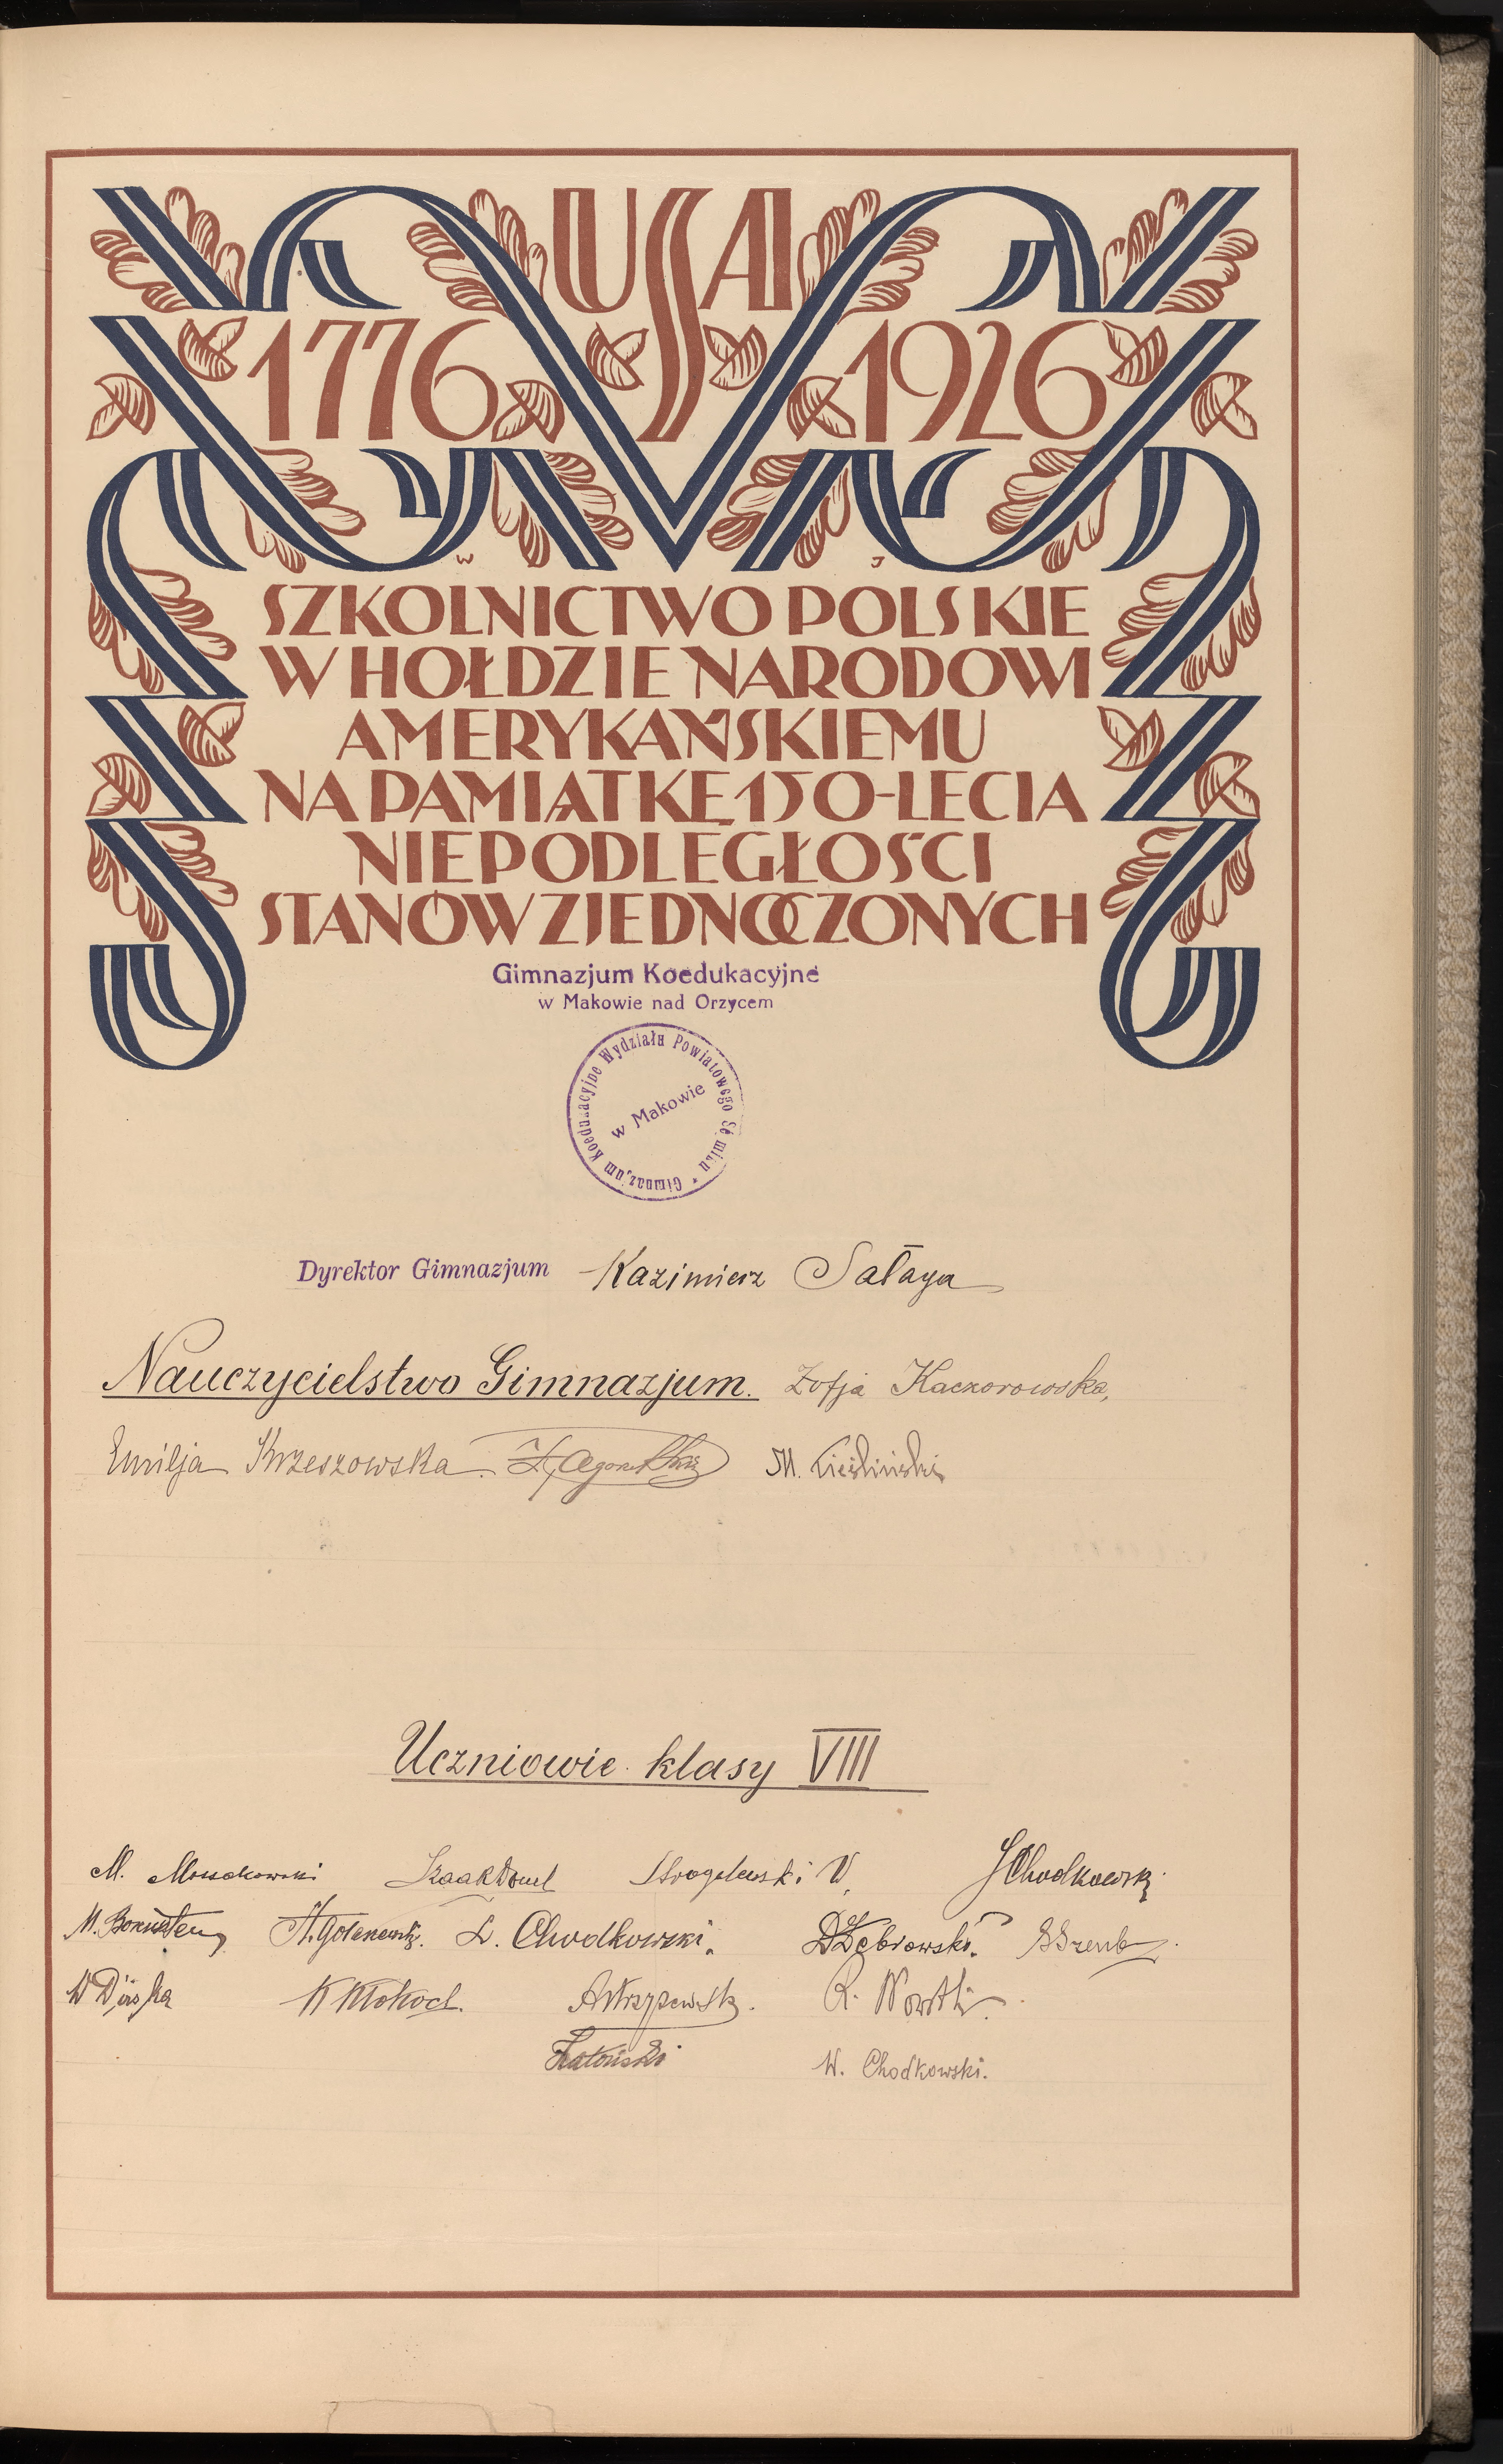 USA
1776 1926
W J
SZKOLNICTWO POLSKIE
W HOŁDZIE NARODOWI
AMERYKAŃSKIEMU
NA PAMIĄTKĘ 150-LECIA
NIEPODLEGŁOŚCI
STANÓW ZJEDNOCZONYCH
Gimnazjum Koedukacyjne
w Makowie nad Orzycem
Gimnazjum Koedukacyjne Wydziału Powiatowego Sejmiku
w Makowie
Dyrektor Gimnazjum Kazimierz Sałaga
Nauczycielstwo Gimnazjum. Zofja Kaczorowska,
Emilja Krzeszowska. M. Cieśliński
Uczniowie klasy VIII
M. Mossakowski J Chodkowski
M. Bornstein L. Chodkowski. Dąbrowski.
K Kłokocl.
R.
W. Chodkowski.